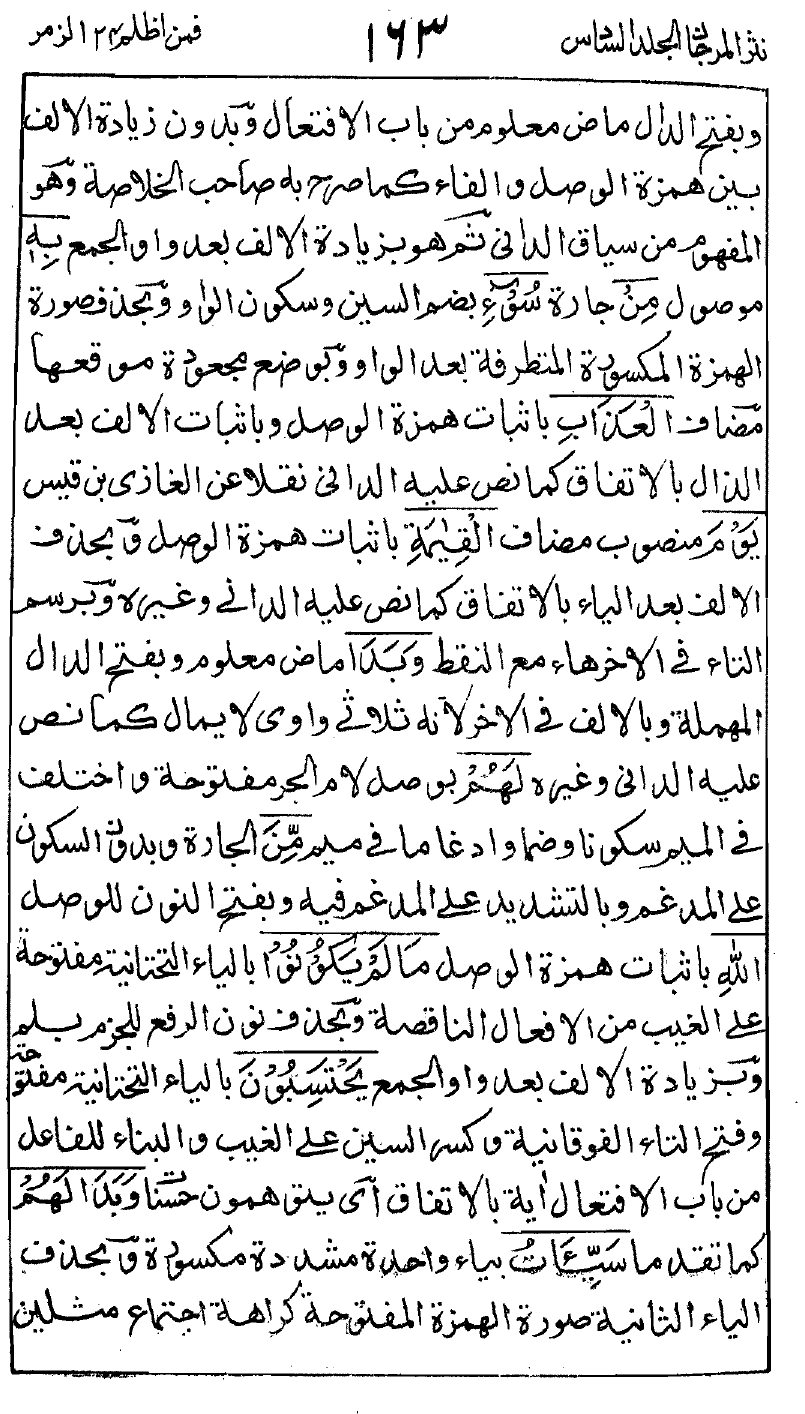 نثر المرجان الجلد السادس ١٦٣ فمن اظلم ٢٤ الزمر
وبفتح الدال ماض معلوم من باب الافتعال وبدون زيادة الالف
بين همزة الوصل والفاء كما صرح به صاحب الخلاصة وهو
المفهوم من سياق الدانى ثم هو بزيادة الالف بعد واو الجمع بِهٖ
موصول مِنْ جارة سُوْٓءِ بضم السين وسكون الواو وبحذف صورة
الهمزة المكسورة المتطرفة بعد الواو وبوضع مجعودة موقعها
مضاف الْعَذَابِ باثبات همزة الوصل وباثبات الالف بعد
الذال بالاتفاق كما نص عليه الدانى نقلا عن الغازى بن قيس
يَوْمَ منصوب مضاف الْقِيٰمَةِ باثبات همزة الوصل وبحذف
الالف بعد الياء بالاتفاق كما نص عليه الدانى وغيره وبرسم
التاء فى الاخرهاء مع النقط وَبَدَا ماض معلوم وبفتح الدال
المهملة وبالالف فى الاخر لانه ثلاثى واوى لا يمال كما نص
عليه الدانى وغيره لَهُمْ بوصل لام الجر مفتوحة واختلف
فى الميم سكونا وضما وادغاما فى ميم مِّنَ الجارة وبدون السكون
على المدغم وبالتشديد على المدغم فيه وبفتح النون للوصل
اللهِ باثبات همزة الوصل مَا لَمْ يَكُوْنُوْا بالياء التحتانية مفتوحة
على الغيب من الافعال الناقصة وبحذف نون الرفع للجزم بلم
وبزيادة الالف بعد واو الجمع يَحْتَسِبُوْنَ بالياء التحتانية مفتوحة
وفتح التاء الفوقانية وكسر السين على الغيب والبناء للفاعل
من باب الافتعال اية بالاتفاق اى يتوهمون حسنا وَبَدَا لَهُمْ
كما تقدما سَيِّئَاتُ بياء واحدة مشددة مكسورة وبحذف
الياء الثانية صورة الهمزة المفتوحة كراهة اجتماع مثلين